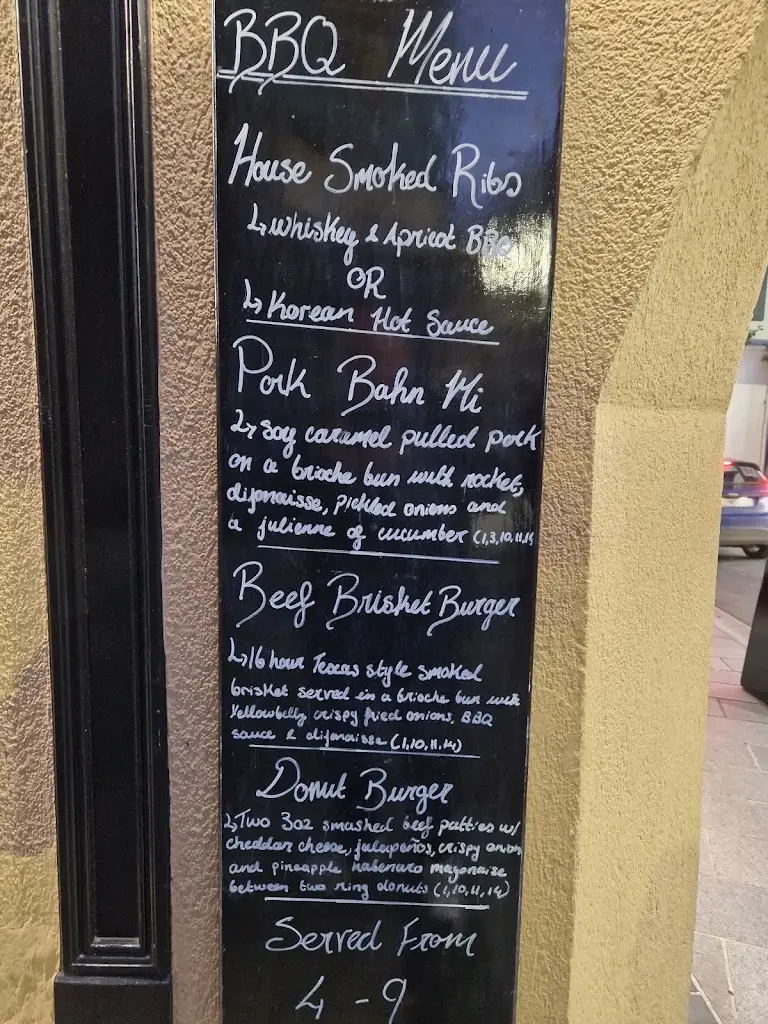 BBQ Menu
House Smoked Ribs
↳ whiskey & Apricot BBQ
OR
↳ Korean Hot Sauce
Pork Bahn Mi
↳ soy caramel pulled pork
on a brioche bun with rocket,
dijonaisse, pickled onions and
a julienne of cucumber (1,3,10,11,14
Beef Brisket Burger
↳ 16 hour Texas style smoked
brisket served in a brioche bun with
Yellowbelly crispy fried onions, BBQ
sauce & dijonaisse (1,10,11,14)
Donut Burger
↳ Two 3oz smashed beef patties w/
cheddar cheese, jalapeños, crispy onion
and pineapple habenaro mayonaise
between two ring donuts (1,10,11,14)
Served From
4 - 9